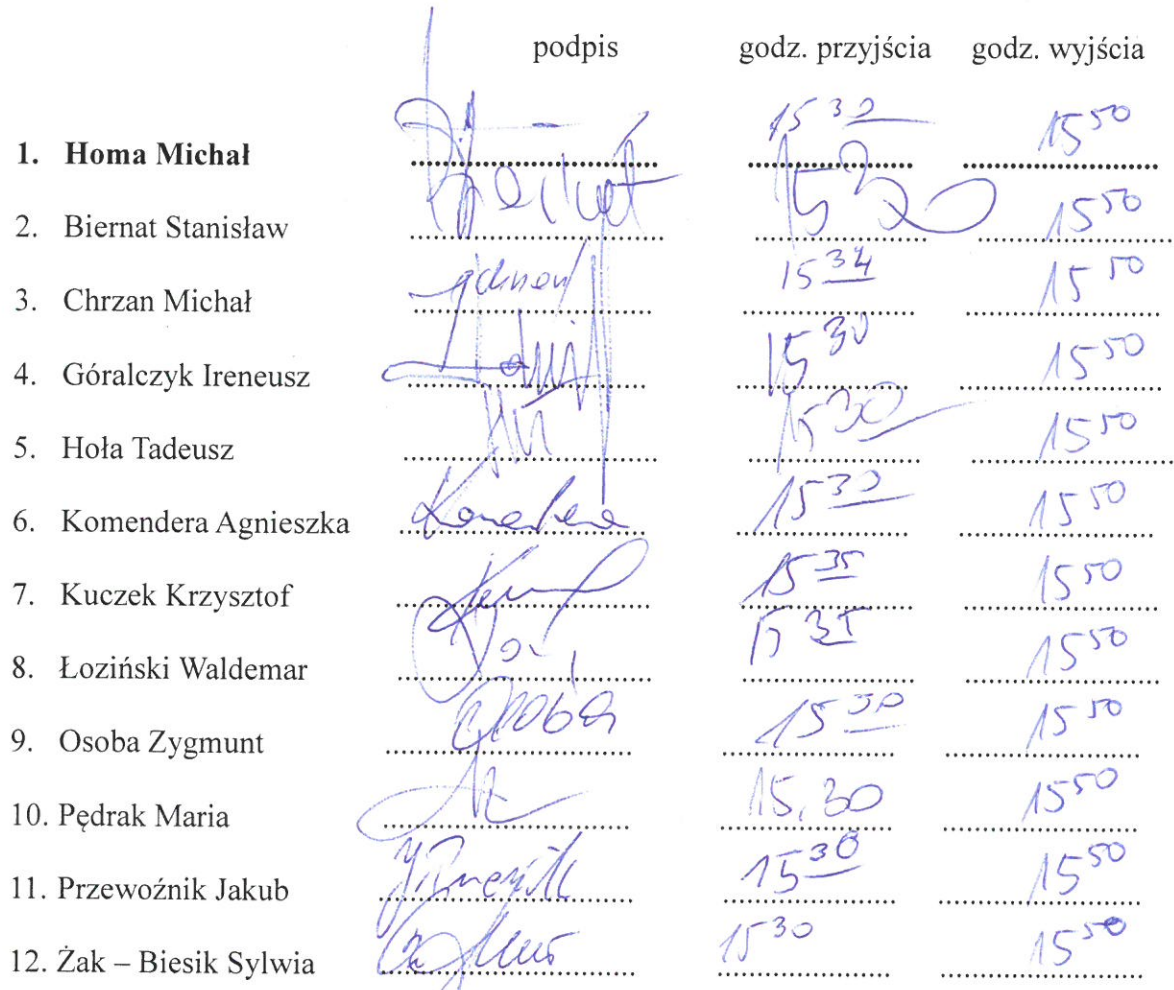 podpis godz. przyjścia godz. wyjścia
1. Homa Michał 15 30 15 50
2. Biernat Stanisław Biernat 15 30 15 50
3. Chrzan Michał 15 34 15 50
4. Góralczyk Ireneusz 15 30 15 50
5. Hoła Tadeusz 15 30 15 50
6. Komendera Agnieszka Komendera 15 30 15 50
7. Kuczek Krzysztof 15 35 15 50
8. Łoziński Waldemar 15 35 15 50
9. Osoba Zygmunt Osoba 15 30 15 50
10. Pędrak Maria 15,30 15 50
11. Przewoźnik Jakub 15 30 15 50
12. Żak – Biesik Sylwia 15 30 15 50